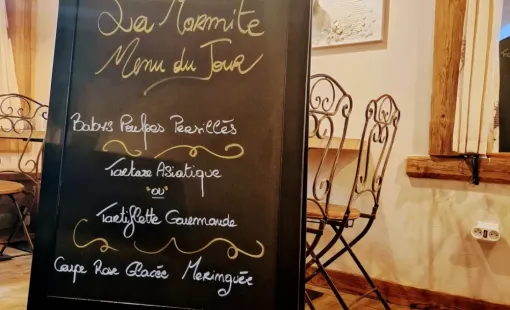 La Marmite
Menu du Jour
Babys Poulpes Persillés
Tartare Asiatique
"ou"
Tartiflette Gourmande
Coupe Rose Glacée Meringuée